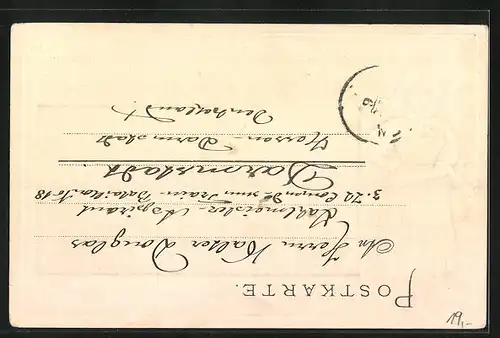 POSTKARTE.
An Herrn Walter Douglas
Zahlmeister-Aspirant
Train-Bataillon No 18
Darmstadt
Hessen-Darmstadt
Deutschland!
19,-